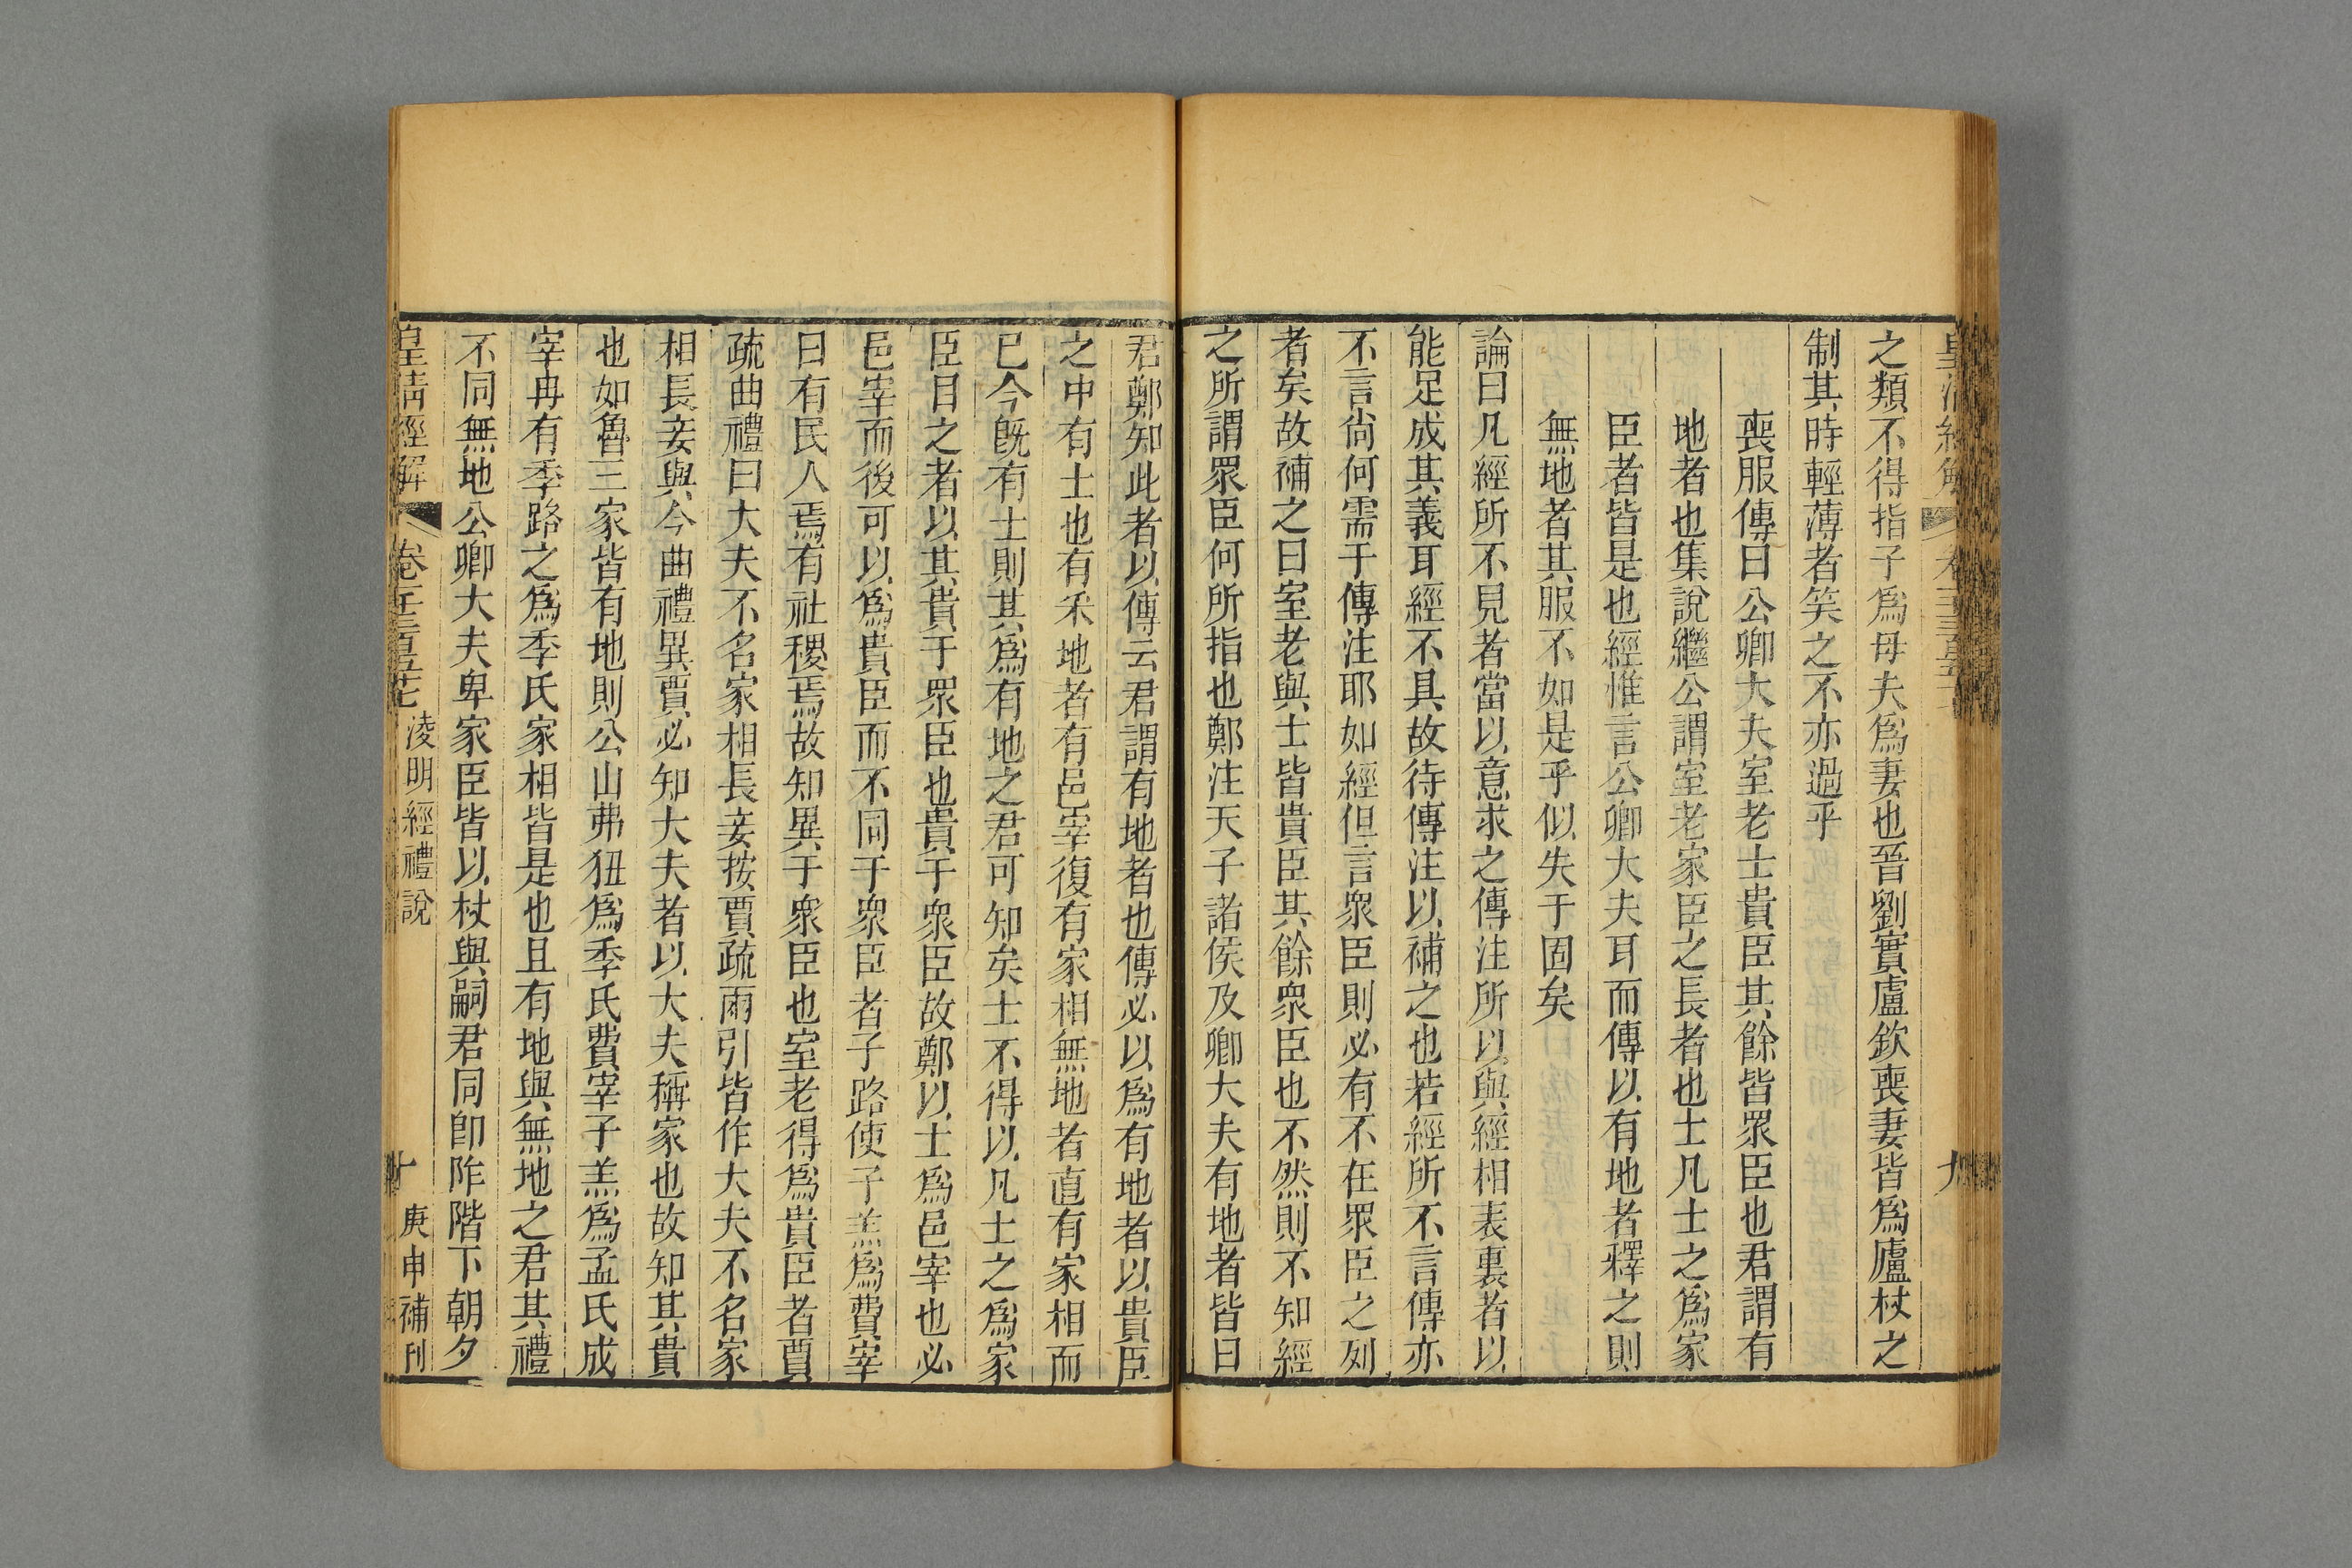 之類不得指子為母夫為妻也晉劉實盧欽喪妻皆為廬杖之
制其時輕薄者笑之不亦過乎
喪服傳曰公卿大夫室老士貴臣其餘皆眾臣也君謂有
地者也集說繼公謂室老家臣之長者也士凡士之為家
臣者皆是也經惟言公卿大夫耳而傳以有地者釋之則
無地者其服不如是乎似失于固矣
論曰凡經所不見者當以意求之傳注所以與經相表裏者以
能足成其義耳經不具故待傳注以補之也若經所不言傳亦
不言尚何需于傳注耶如經但言眾臣則必有不在眾臣之列
者矣故補之曰室老與士皆貴臣其餘眾臣也不然則不知經
之所謂眾臣何所指也鄭注天子諸侯及卿大夫有地者皆曰
君鄭知此者以傳云君謂有地者也傳必以為有地者以貴臣
之中有士也有采地者有邑宰復有家相無地者直有家相而
已今既有士則其為有地之君可知矣士不得以凡士之為家
臣目之者以其貴于眾臣也貴于眾臣故鄭以士為邑宰也必
邑宰而後可以為貴臣而不同于眾臣者子路使子羔為費宰
曰有民人焉有社稷焉故知異于眾臣也室老得為貴臣者賈
疏曲禮曰大夫不名家相長妾按賈疏兩引皆作大夫不名家
相長妾與今曲禮異賈必知大夫者以大夫稱家也故知其貴
也如魯三家皆有地則公山弗狃為季氏費宰子羔為孟氏成
宰冉有季路之為季氏家相皆是也且有地與無地之君其禮
不同無地公卿大夫卑家臣皆以杖與嗣君同即阼階下朝夕
皇清經解 卷 淩明經禮說 十 庚申補刊